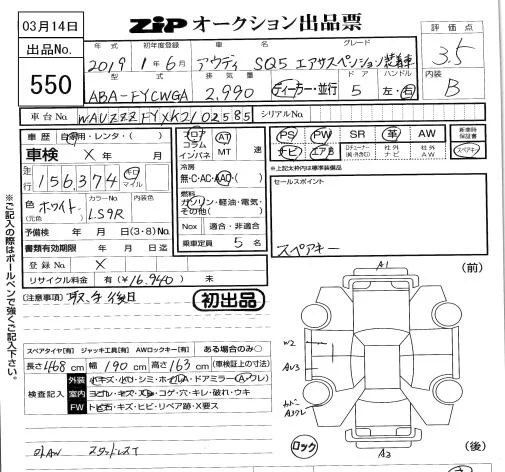 03月14日
ZiP オークション出品票
出品No.
550
年式 初年度登録 車名 グレード
2019 1年6月 アウディ SQ5 エアサスペンション装着車
型式 排気量 ドア ハンドル
ABA-FYCWGA 2,990 ディーラー・並行 5 左・右
評価点
3.5
内装
B
車台No. WAUZZZFYXK2102585 シリアルNo.
車歴 自家用・レンタ・( )
車検 × 年 月
走行 156,374 キロ マイル
色 (元色) ホワイト カラーNo. LS9R 内装色
予備検 年 月 日(3・8)No.
書類有効期限 年 月 日迄
登録No. ×
リサイクル料金 有(¥16,940) 未
フロア コラム インパネ AT MT 速
冷房
無・C・AC・AAC・( )
燃料
ガソリン・軽油・電気・その他( )
Nox 適合・非適合
乗車定員 5 名
PS PW SR 革 AW
ナビ エアB Dチューナー(純・外含む) 社外ナビ 社外AW
新車時保証書
スペアキー
※上記太枠内は標準装備品
セールスポイント
スペアキー
(注意事項) 取,予後日
初出品
スペアタイヤ[有] ジャッキ工具[有] AWロックキー[有] ある場合のみ〇
長さ 468 cm 幅 190 cm 高さ 163 cm (車検証上の寸法)
検査記入
外装 小キズ・小U・シミ・ホイルA・ドアミラー(A・ワレ)
室内 ヨゴレ・キズ・スレ・コゲ・穴・キレ・破れ・ウキ
FW トビ石・キズ・ヒビ・リペア跡・X要ス
外AW スタッドレスT
※ご記入の際はボールペンで強くご記入下さい。
A1
(前)
W2
AU3
カドニ
A3ワレ
ロック
A3
(後)